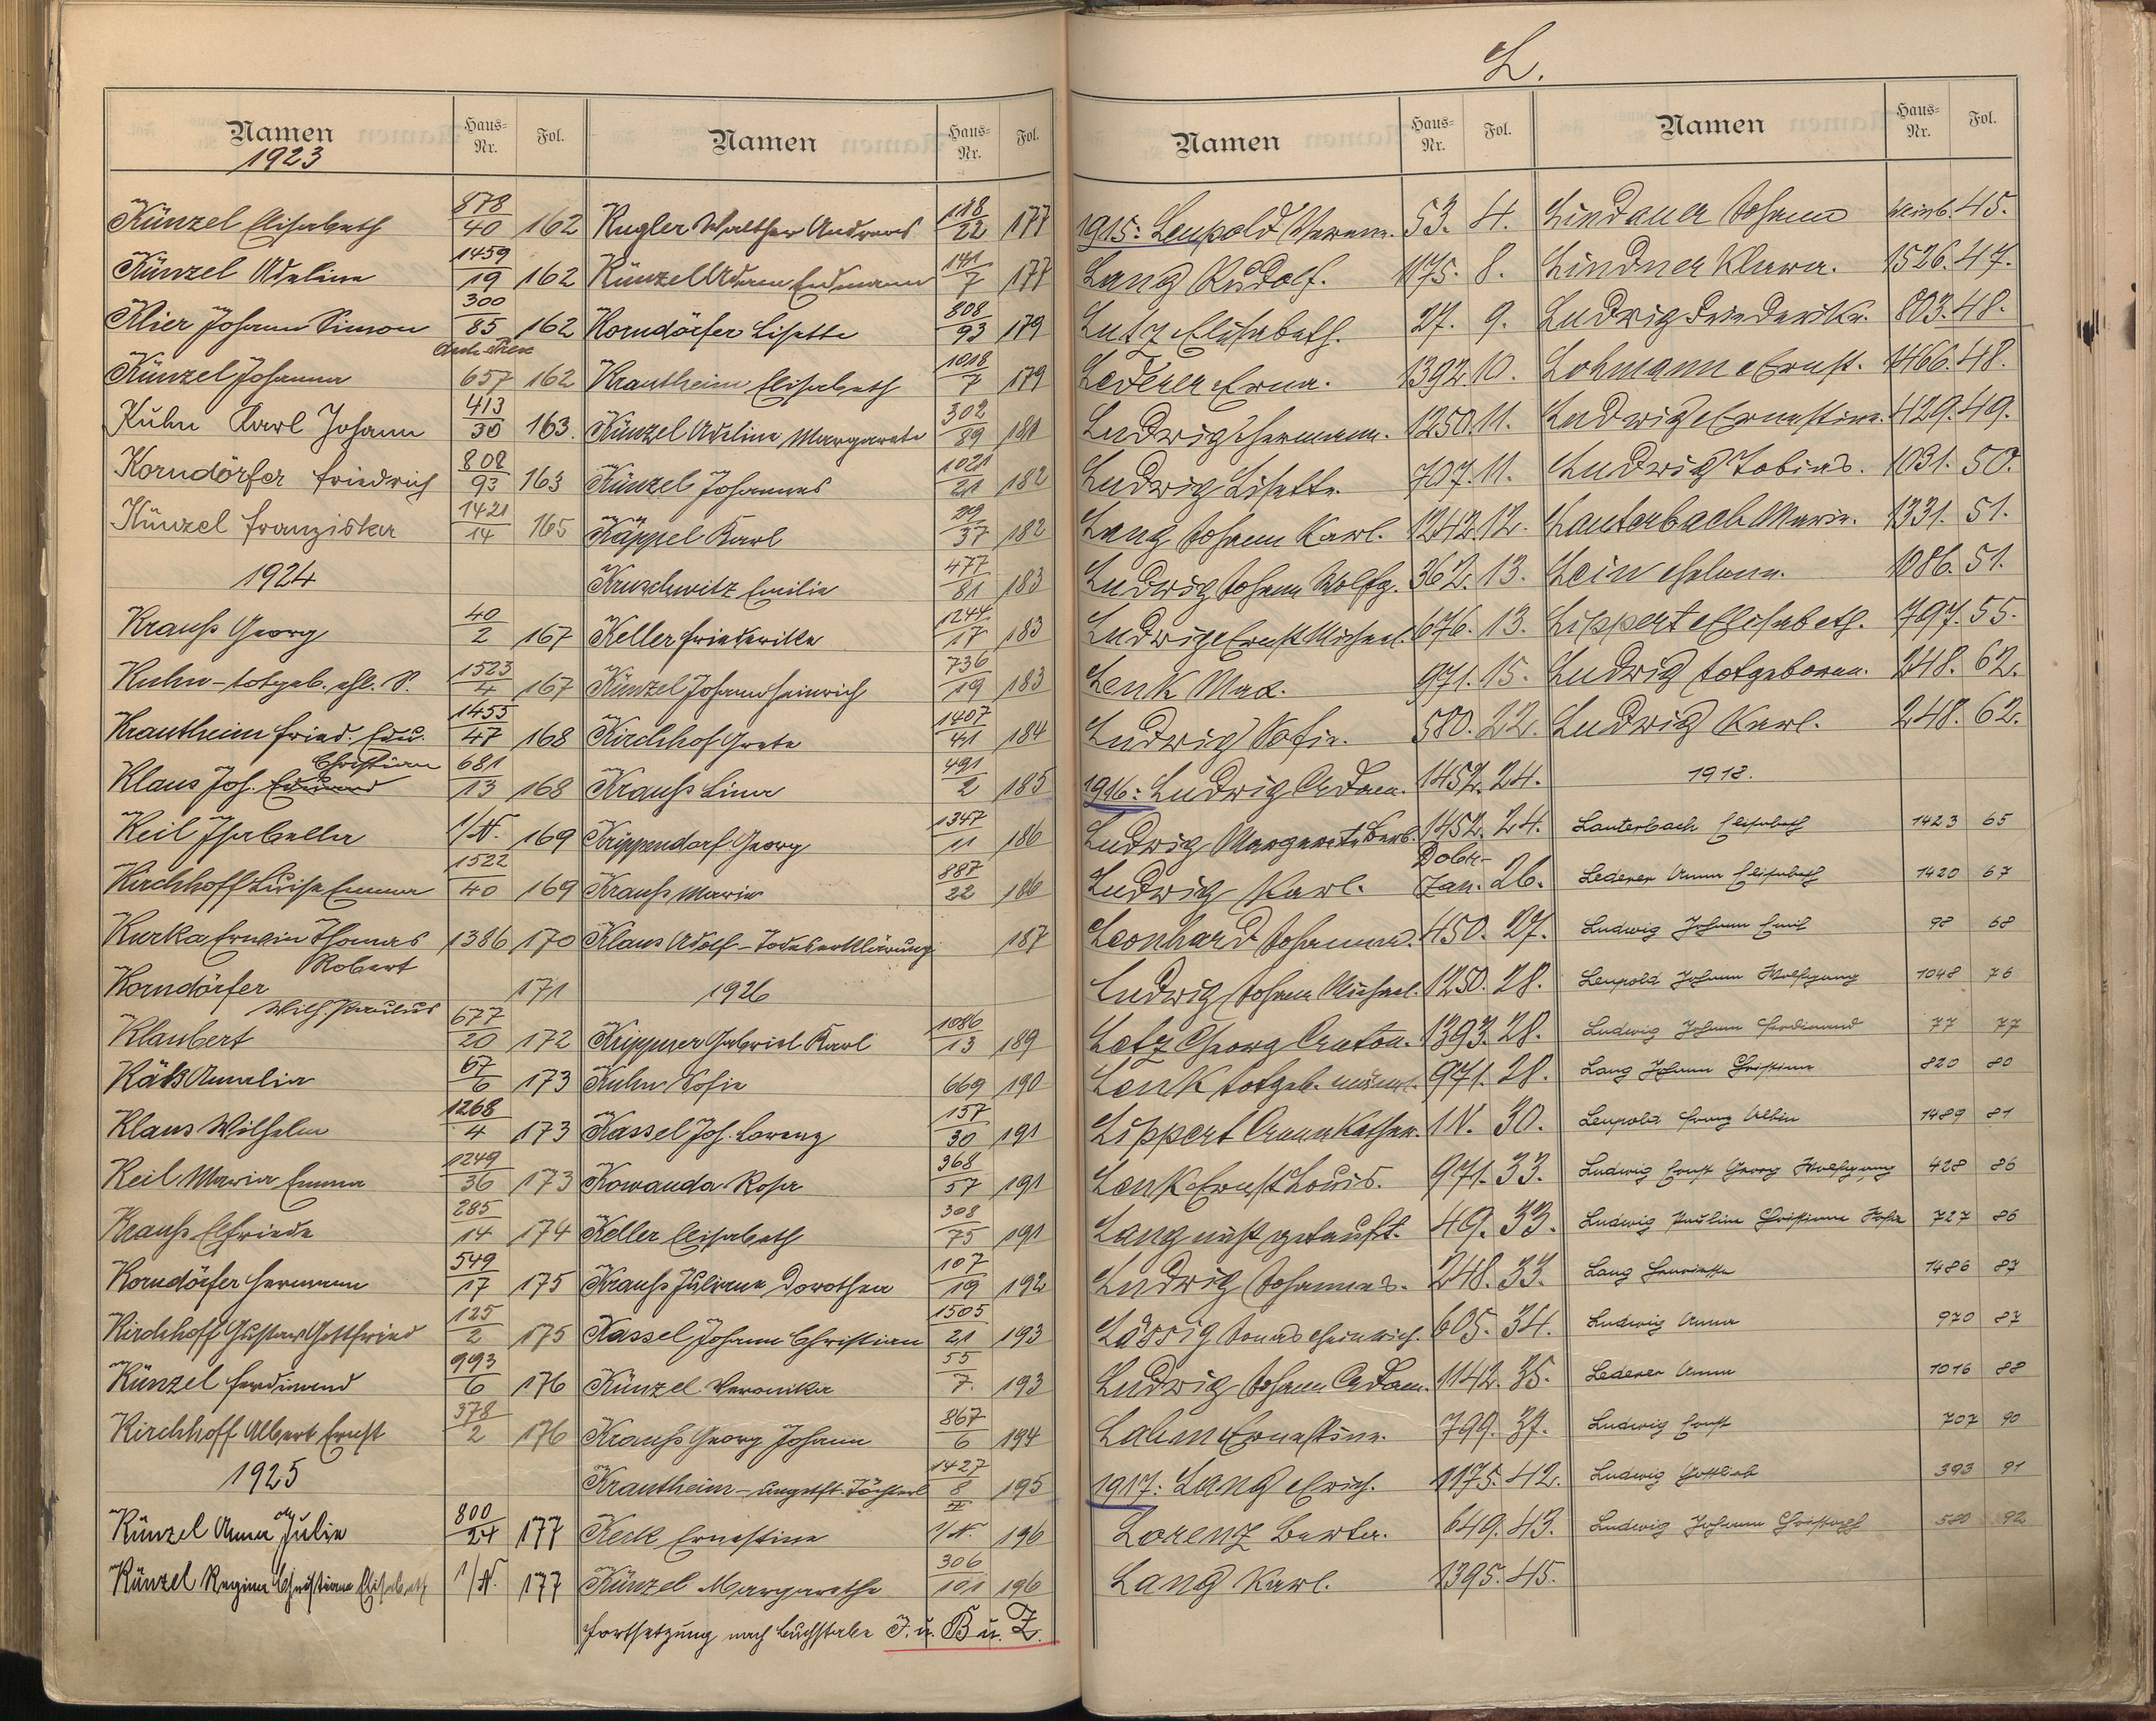 L.
Namen Haus-Nr. Fol.
1923
Künzel Elisabeth 878/40 162
Künzel Adeline 1459/19 162
Klier Johann Simon 300/85 162
Künzel Johanna 657 162
Kuhn Karl Johann 413/30 163.
Korndörfer Friedrich 808/93 163
Künzel Franziska 1421/14 165
1924
Krauß Georg 40/2 167
Kuhn-totgeb. ehl. S. 1523/4 167
Krautheim Fried. Edu. 1455/47 168
Christian
Klaus Joh. Eduard 681/13 168
Keil Isabella 1/N. 169
Kirchhoff Luise Emma 1522/40 169
Kurka Erwin Thomas 1386 170
Robert
Korndörfer 171
Wilh. Paulus
Klaubert 677/20 172
Käß Amalia 67/6 173
Klaus Wilhelm 1268/4 173
Keil Maria Emma 1249/36 173
Krauß Elfriede 285/14 174
Korndörfer Hermann 549/17 175
Kirchhoff Gustav Gottfried 125/2 175
Künzel Ferdinand 993/6 176
Kirchhoff Albert Ernst 378/2 176
1925
Künzel Anna Julie 800/24 177
Künzel Regina Christiane Elisabeth 1/N. 177
Namen Haus-Nr. Fol.
Kugler Walther Andreas 118/22 177
Künzel Adam Erdmann 141/7 177
Korndörfer Lisette 808/93 179
Krautheim Elisabeth 1018/7 179
Künzel Adeline Margarete 302/89 181
Künzel Johannes 1021/21 182
Käppel Karl 37 182
Kruschwitz Emilie 477/81 183
Keller Friederike 1244/17 183
Künzel Johann Heinrich 736/19 183
Kirchhof Greta 1407/41 184
Krauß Lina 491/2 185
Krippendorf Georg 1347/11 186
Krauß Marie 887/22 186
Klaus Adolf-Todeserklärung 187
1926
Krippner Gabriel Karl 1086/13 189
Kuhn Sofie 669 190
Kassel Joh. Lorenz 157/30 191
Kowanda Rosa 368/57 191
Keller Elisabeth 308/75 191
Krauß Juliana Dorothea 107/19 192
Kassel Johann Christian 1505/21 193
Künzel Veronika 55/7. 193
Krauß Georg Johann 867/6 194
Krautheim-ungetft. Töchterl 1427/8 II 195
Keck Ernestine 1/N. 196
Künzel Margarethe 306/101 196
Fortsetzung nach Buchstabe I. u. B u. Z.
Namen Haus-Nr. Fol.
1915: Leupold Verena. 53. 4.
Lang Rudolf. 1175. 8.
Lutz Elisabeth. 27. 9.
Lederer Erna. 1392. 10.
Ludwig Hermann. 1250. 11.
Ludwig Lisette. 707. 11.
Lang Johann Karl. 1242. 12.
Ludwig Johann Wolfg. 362. 13.
Ludwig Ernst Michael. 676. 13.
Lenk Max. 971. 15.
Ludwig Sofie. 580. 22.
1916: Ludwig Adam. 1452. 24.
Ludwig Margarete Barb. 1452. 24.
Ludwig Karl. 26.
Leonhard Johanna. 450. 27.
Ludwig Johann Michael. 1250. 28.
Lotz Georg Anton. 1393. 28.
Lenk totgeb. männl. 971. 28.
Lippert Anna Kathar. 1 N. 30.
Lenk Ernst Louis. 971. 33.
Lang nicht getauft. 49. 33.
Ludwig Johannes. 248. 33.
Lässig Jonas Heinrich. 605. 34.
Ludwig Johann Adam. 1142. 35.
Lahm Ernestine. 799. 37.
1917: Lang Erich. 1175. 42.
Lorenz Berta. 649. 43.
Lang Karl. 1395. 45.
Namen Haus-Nr. Fol.
Lindauer Johann 45.
Lindner Klara. 1526. 47.
Ludwig Friederike. 803. 48.
Lohmann Ernst. 1466. 48.
Ludwig Ernestine. 429. 49.
Ludwig Tobias. 1031. 50.
Lauterbach Marie. 1331. 51.
Lein Helena. 1086. 51.
Lippert Elisabeth. 797. 55.
Ludwig totgeboren. 248. 62.
Ludwig Karl. 248. 62.
1918.
Lauterbach Elisabeth 1423 65
Lederer Anna Elisabeth 1420 67
Ludwig Johann Emil 98 68
Leupold Johann Wolfgang 1048 76
Ludwig Johann Ferdinand 77 77
Lang Johann Christian 820 80
Leupold Franz Albin 1489 81
Ludwig Ernst Georg Wolfgang 428 86
Ludwig Pauline Christiane 727 86
Lang Henriette 1486 87
Ludwig Anna 970 87
Lederer Anna 1016 88
Ludwig Ernst 707 90
Ludwig Gottlieb 393 91
Ludwig Johann Christoph 580 92